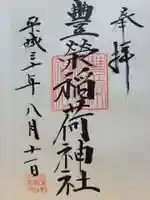 奉拝
豊榮稲荷神社
平成三十一年八月十一日